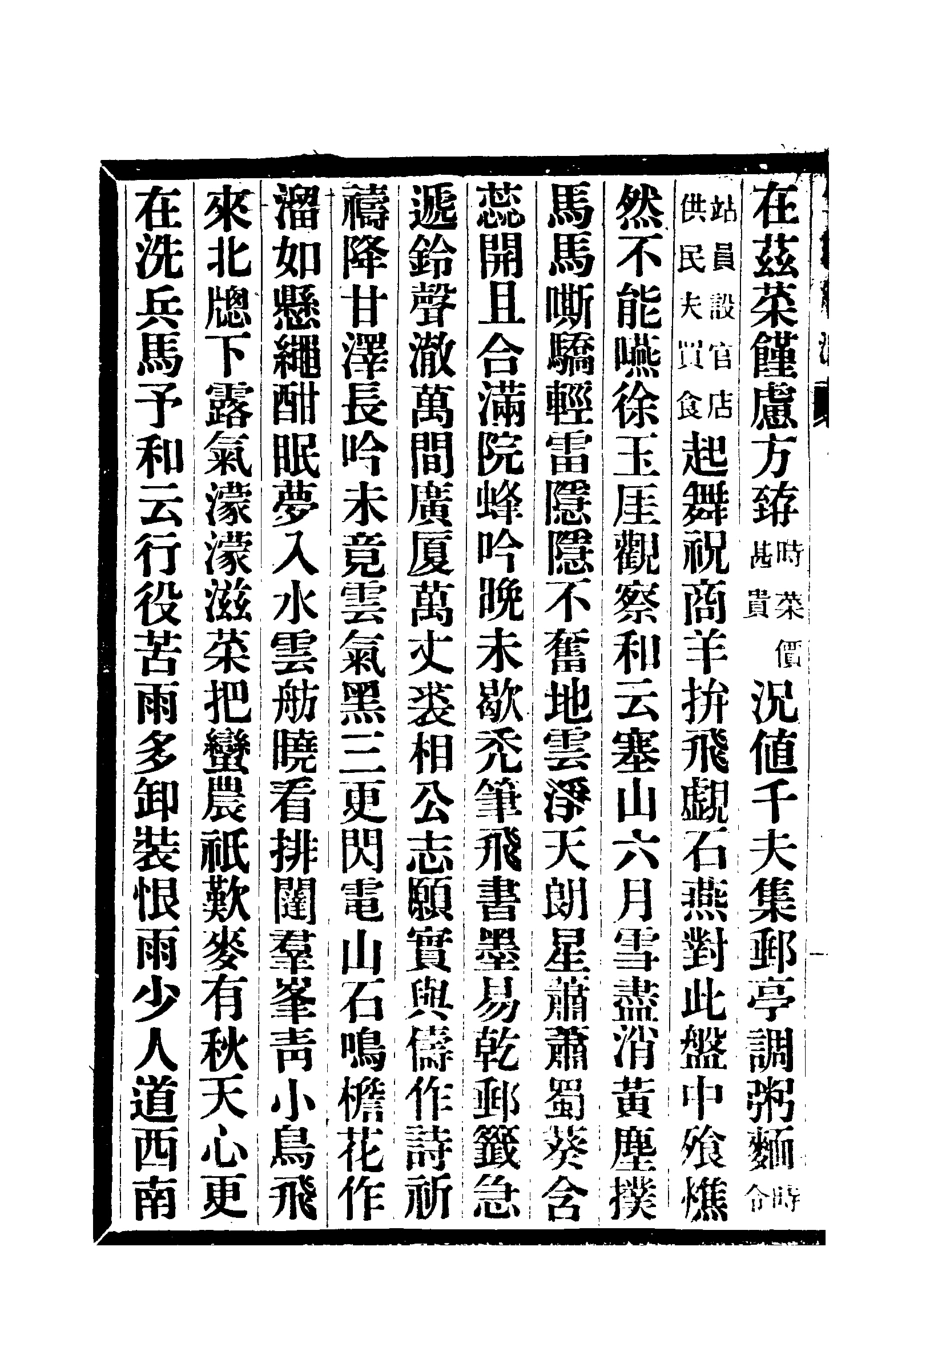 在茲菜饉慮方臻時菜價甚貴況値千夫集郵亭調粥麵時令
站員設官店供民夫買食起舞祝商羊拚飛覷石燕對此盤中飧燋
然不能嚥徐玉厓觀察和云塞山六月雪盡消黃塵撲
馬馬嘶驕輕雷隱隱不奮地雲淨天朗星蕭蕭蜀葵含
蕊開且合滿院蜂吟晚未歇禿筆飛書墨易乾郵籤急
遞鈴聲澈萬間廣厦萬丈裘相公志願實與儔作詩祈
禱降甘澤長吟未竟雲氣黑三更閃電山石鳴檐花作
溜如懸繩酣眠夢入水雲舫曉看排闥羣峯靑小鳥飛
來北牕下露氣濛濛滋菜把蠻農祇歎麥有秋天心更
在洗兵馬予和云行役苦雨多卸裝恨雨少人道西南